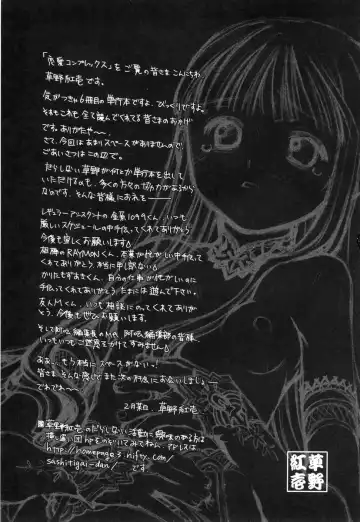 「危愛コンプレックス」をご覧の皆さまこんにちわ
草野紅壱です。
気がつきゃ6冊目の単行本ですよ、びっくりですよ。
それもこれも全て読んでくれてる皆さまのおかげ
です。ありがたや〜。
さて、今回はあまりスペースがありませんので
ごあいさつはこの辺で。
だらしない草野が何とか単行本を出して
いただけるのも、多くの方々の協力があるから
なのです。そんな皆様にお礼を――
レギュラーアシスタントの 1099くん、いつも
厳しいスケジュールの中手伝ってくれてありがとう
今後も宜しくお願いします
RAYMONくん、本業が忙しい中手伝って
くれてありがとう、本当に申し訳ない
かりたもすまきくん、自分の仕事が忙しいのに
手伝ってくれてありがとう、たまには遊んで下さい。
友人Mくん、いつも相談にのってくれてありが
とう、今後も宜しくお願いします。
そして担当編集のM様、阿吽編集部の皆様、
いつもいつもご迷惑をかけてすみません
ああ…もう本当にスペースがないっ!
皆さま、そんな感じでまた次の作品でお会いしましょう――
でわでわ〜
2月某日、草野紅壱
草野紅壱のだらしない活動に興味のある方は
hpものぞいてみてねん。アドレスは
http://homepage3.nifty.com/
sashitigai-dan/ です
草野
紅壱